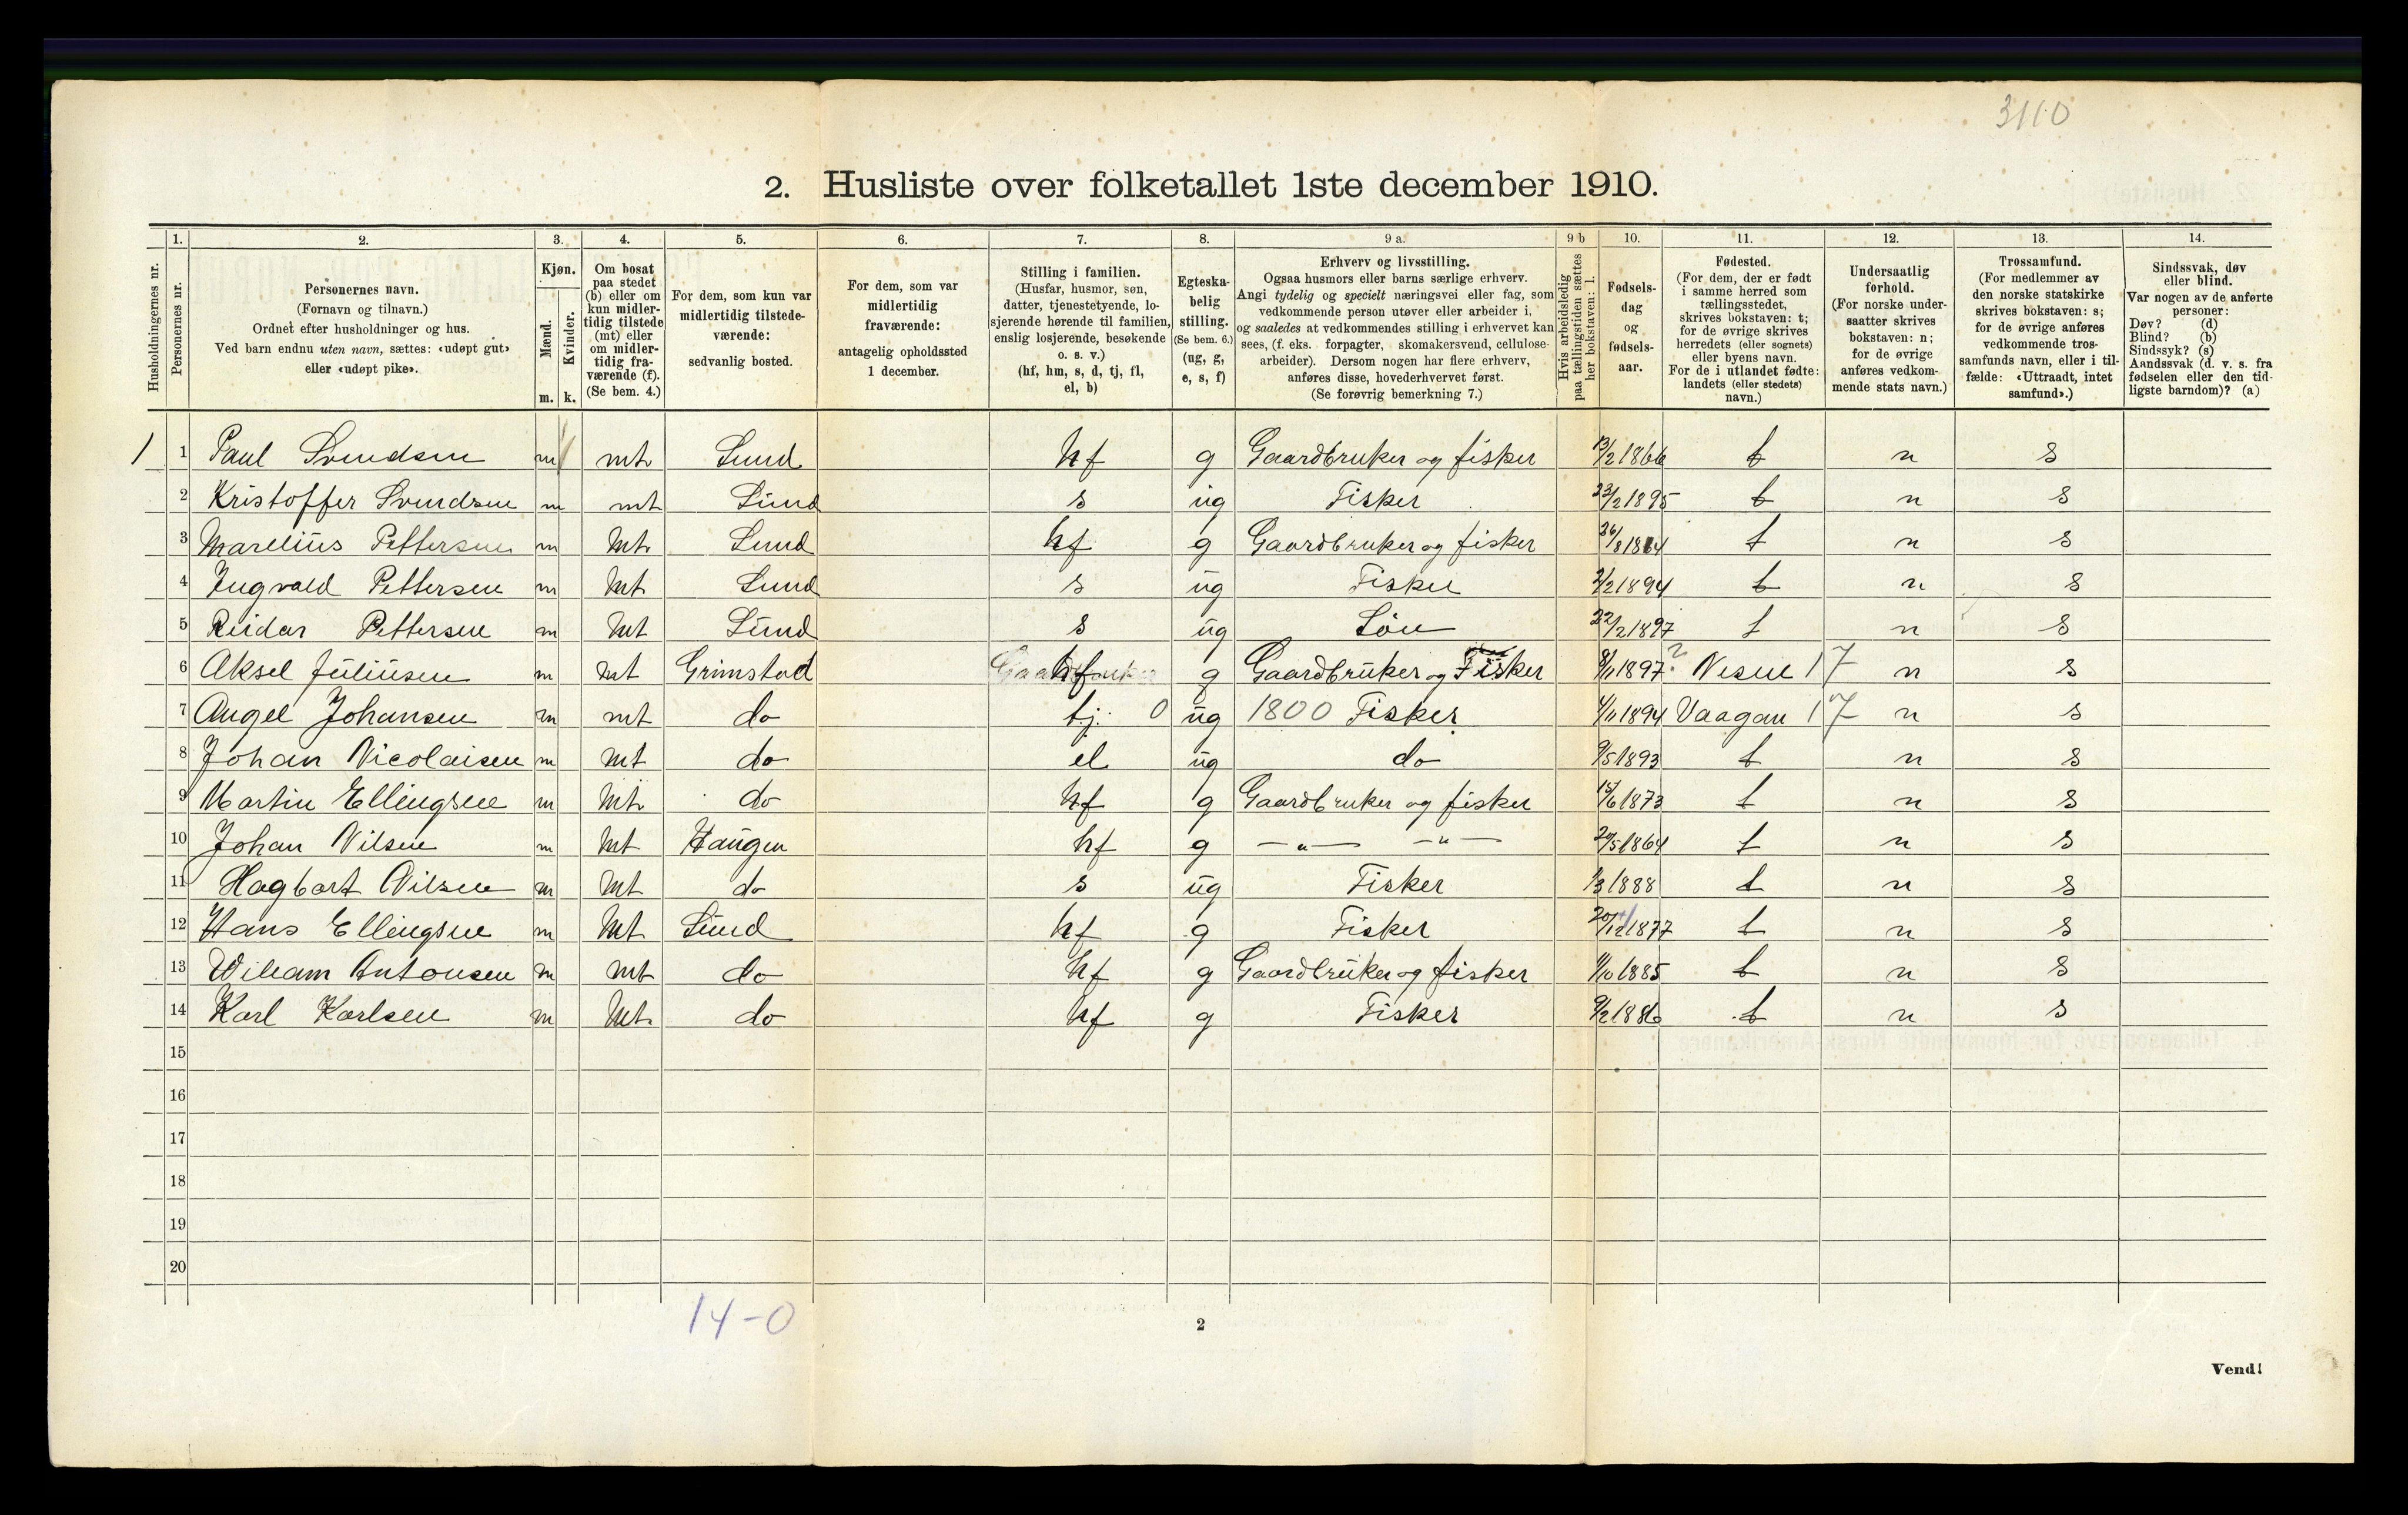 3110
2. Husliste over folketallet 1ste december 1910.
Husholdningernes nr.
1. Personernes nr.
2. Personernes navn.
(Fornavn og tilnavn.)
Ordnet efter husholdninger og hus.
Ved barn endnu uten navn, sættes: «udøpt gut»
eller «udøpt pike».
3. Kjøn.
Mænd. Kvinder.
m. k.
4. Om bosat
paa stedet
(b) eller om
kun midler-
tidig tilstede
(mt) eller
om midler-
tidig fra-
værende (f).
(Se bem. 4.)
5. For dem, som kun var
midlertidig tilstede-
værende:
sedvanlig bosted.
6. For dem, som var
midlertidig
fraværende:
antagelig opholdssted
1 december.
7. Stilling i familien.
(Husfar, husmor, søn,
datter, tjenestetyende, lo-
sjerende hørende til familien,
enslig losjerende, besøkende
o. s. v.)
(hf, hm, s, d, tj, fl,
el, b)
8. Egteska-
belig
stilling.
(Se bem. 6.)
(ug, g,
e, s, f)
9 a. Erhverv og livsstilling.
Ogsaa husmors eller barns særlige erhverv.
Angi tydelig og specielt næringsvei eller fag, som
vedkommende person utøver eller arbeider i,
og saaledes at vedkommendes stilling i erhvervet kan
sees, (f. eks. forpagter, skomakersvend, cellulose-
arbeider). Dersom nogen har flere erhverv,
anføres disse, hovederhvervet først.
(Se forøvrig bemerkning 7.)
9 b Hvis arbeidsledig
paa tællingstiden sættes
her bokstaven: l.
10. Fødsels-
dag
og
fødsels-
aar.
11. Fødested.
(For dem, der er født
i samme herred som
tællingsstedet,
skrives bokstaven: t;
for de øvrige skrives
herredets (eller sognets)
eller byens navn.
For de i utlandet fødte:
landets (eller stedets)
navn.)
12. Undersaatlig
forhold.
(For norske under-
saatter skrives
bokstaven: n;
for de øvrige
anføres vedkom-
mende stats navn.)
13. Trossamfund.
(For medlemmer av
den norske statskirke
skrives bokstaven: s;
for de øvrige anføres
vedkommende tros-
samfunds navn, eller i til-
fælde: «Uttraadt, intet
samfund».)
14. Sindssvak, døv
eller blind.
Var nogen av de anførte
personer:
Døv? (d)
Blind? (b)
Sindssyk? (s)
Aandssvak (d. v. s. fra
fødselen eller den tid-
ligste barndom)? (a)
1 1 Paul Svendsen m mt Lund hf g Gaardbruker og fisker 13/2 1866 t n s
2 Kristoffer Svendsen m mt Lund s ug Fisker 23/2 1895 t n s
3 Marelius Pettersen m mt Lund hf g Gaardbruker og fisker 26/8 1864 t n s
4 Ingvald Pettersen m mt Lund s ug Fisker 2/2 1894 t n s
5 Reidar Pettersen m mt Lund s ug Søn 22/2 1897 t n s
6 Aksel Juliusen m mt Grimstad hf g Gaardbruker og Fisker 8/11 1897 ? Nesne 17 n s
7 Angel Johansen m mt do tj. 0 ug 1800 Fisker 4/11 1894 Vaagan 17 n s
8 Johan Nicolaisen m mt do el ug do 9/5 1893 t n s
9 Martin Ellingsen m mt do hf g Gaardbruker og fisker 15/6 1873 t n s
10 Johan Nilsen m mt Haugen hf g —„— —„— 20/5 1864 t n s
11 Hagbart Nilsen m mt do s ug Fisker 1/3 1888 t n s
12 Hans Ellingsen m mt Lund hf g Fisker 20/12 1877 t n s
13 Wiliam Antonsen m mt do hf g Gaardbruker og fisker 1/10 1885 t n s
14 Karl Karlsen m mt do hf g Fisker 9/2 1886 t n s
15
16
17
18
19
20
14-0
2
Vend!